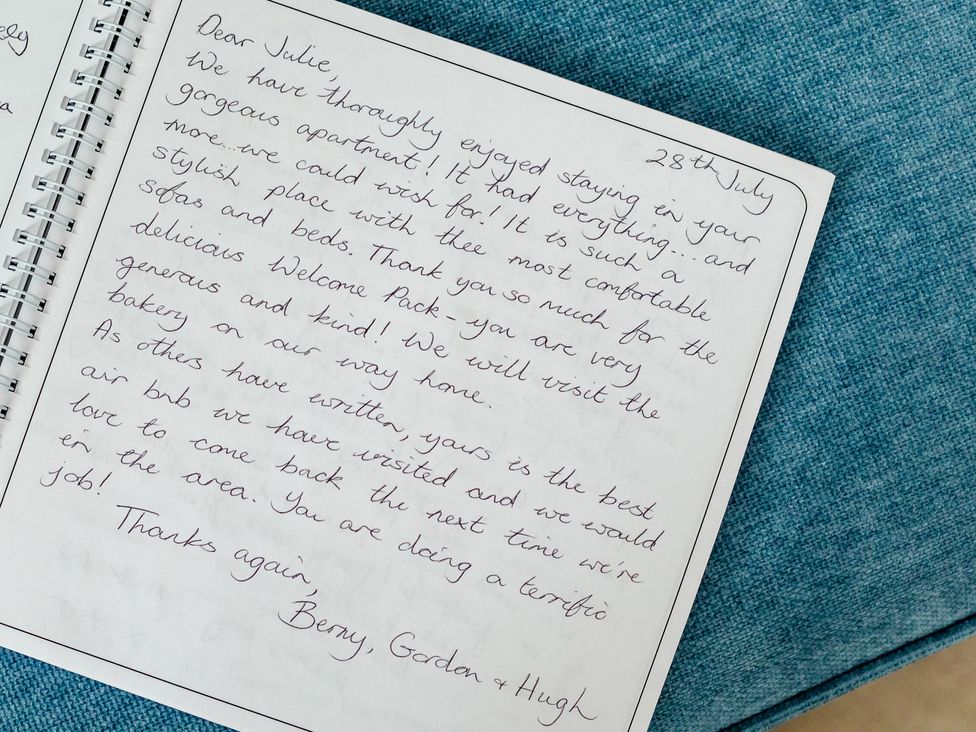 ely
a
28th July
Dear Julie,
We have thoroughly enjoyed staying in your
gorgeous apartment! It had everything...and
more...we could wish for! It is such a
stylish place with thee most comfortable
sofas and beds. Thank you so much for the
delicious Welcome Pack - you are very
generous and kind! We will visit the
bakery on our way home.
As others have written, yours is the best
air bnb we have visited and we would
love to come back the next time we're
in the area. You are doing a terrific
job!
Thanks again,
Berny, Gordon + Hugh